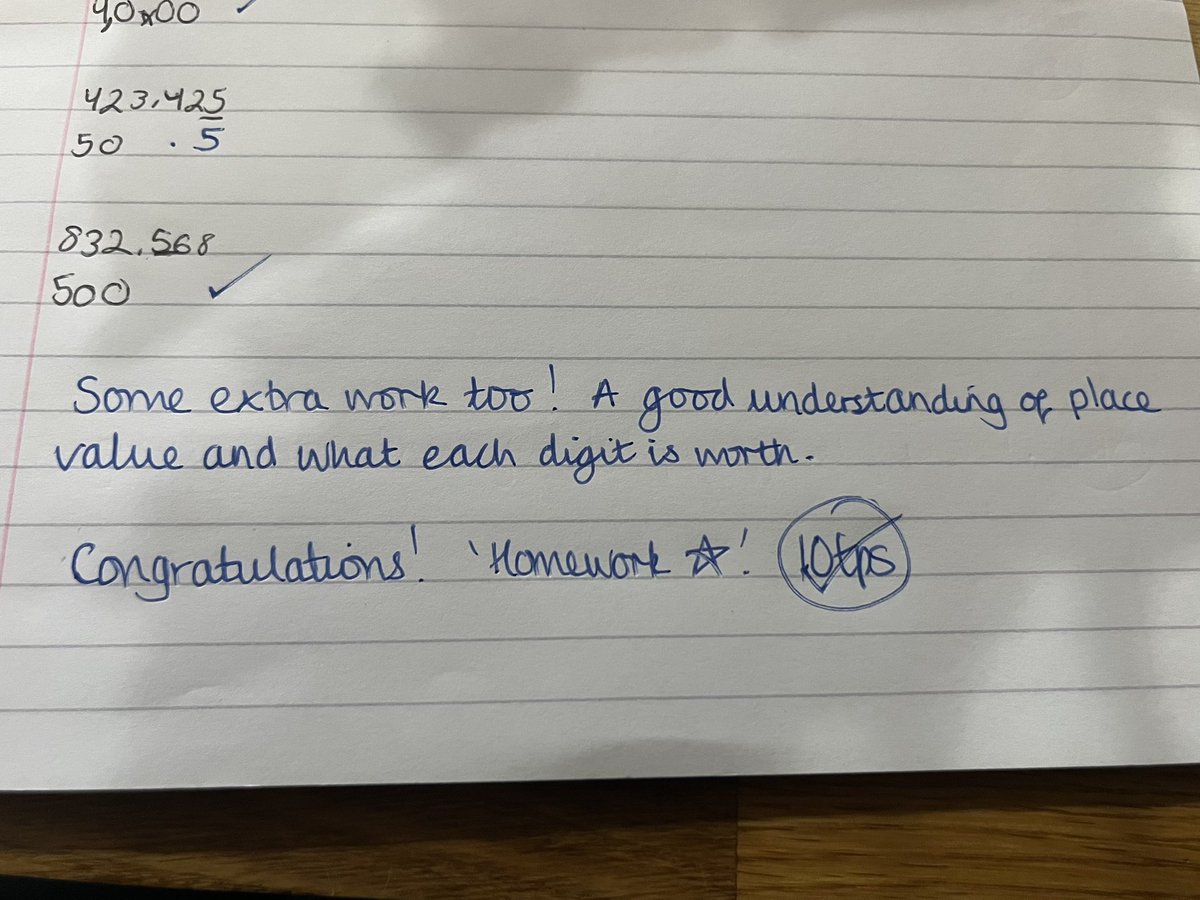 40x00 ✓
423,425
50 . 5
832,568
500 ✓
Some extra work too! A good understanding of place
value and what each digit is worth.
Congratulations! 'Homework ☆'! 10tps